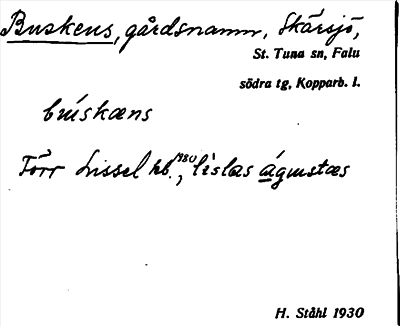 Buskens, gårdsnamn, Skärsjö,
St. Tuna sn, Falu
södra tg, Kopparb. l.
búskæns
Förr Lissel hb., 1780 líslas águstæs
H. Ståhl 1930